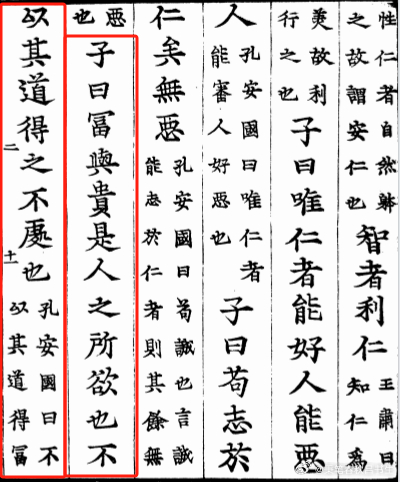 性仁者自然躰
之故謂安仁也
智者利仁
王肅曰
知仁為
美故利
行之也
子曰唯仁者能好人能惡
人
孔安國曰唯仁者
能審人好惡也
子曰苟志於
仁矣無惡
孔安國曰苟誠也言誠
能志於仁者則其餘無
惡
也
子曰冨與貴是人之所欲也不
以其道得之不處也
二
十一
孔安國曰不
以其道得冨